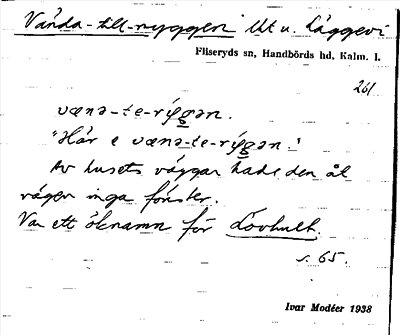 Vända-till-ryggen Ut u. Läggevi
Fliseryds sn, Handbörds hd, Kalm. l.
261
væna-te-rýgən.
"Här e væna-te-rýgən."
Av husets väggar hade den åt
vägen inga fönster.
Var ett öknamn för Lövhult.
s. 65.
Ivar Modéer 1938